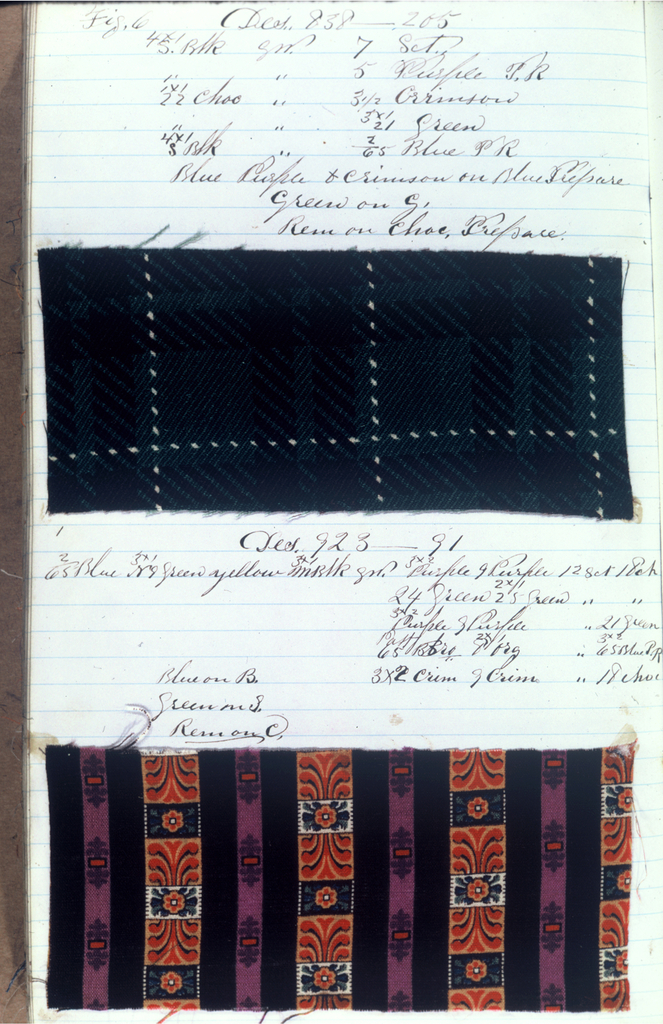 Fig. 6 Des. 838 — 205
4x1 S. Blk gr. 7 Sct.
" " 5 Purple P. R
1x1 22 Choc " 3 1/2 Crimson
" " 3x1 21 Green
4x1 S Blk " 2 65 Blue P R
Blue Purple & Crimson on Blue Prepare
Green on G.
Rem on Choc. Prepare.
1
Des. 923 — 91
2 65 Blue 3x1 Green yellow Blk gr. 3x2 Purple 9 Purple 12 Sct 18ch
24 Green 2x1 25 Green " "
3x2 Purple 9 Purple " 21 Green
65 2x1 " 3x2 65 Blue P.R
Blue on B. 3x2 Crim 9 Crim " 18 Choc
Green on G.
Rem on C.